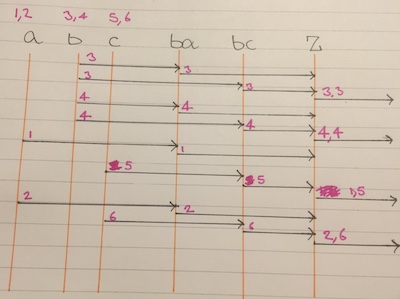 1,2 3,4 5,6
a b c ba bc Z
3 3
3 3 3,3
4 4
4 4 4,4
1 1
5 5 1,5
2 2
6 6 2,6